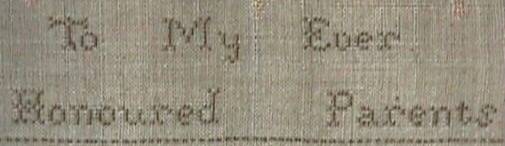 To My Ever
Honoured Parents